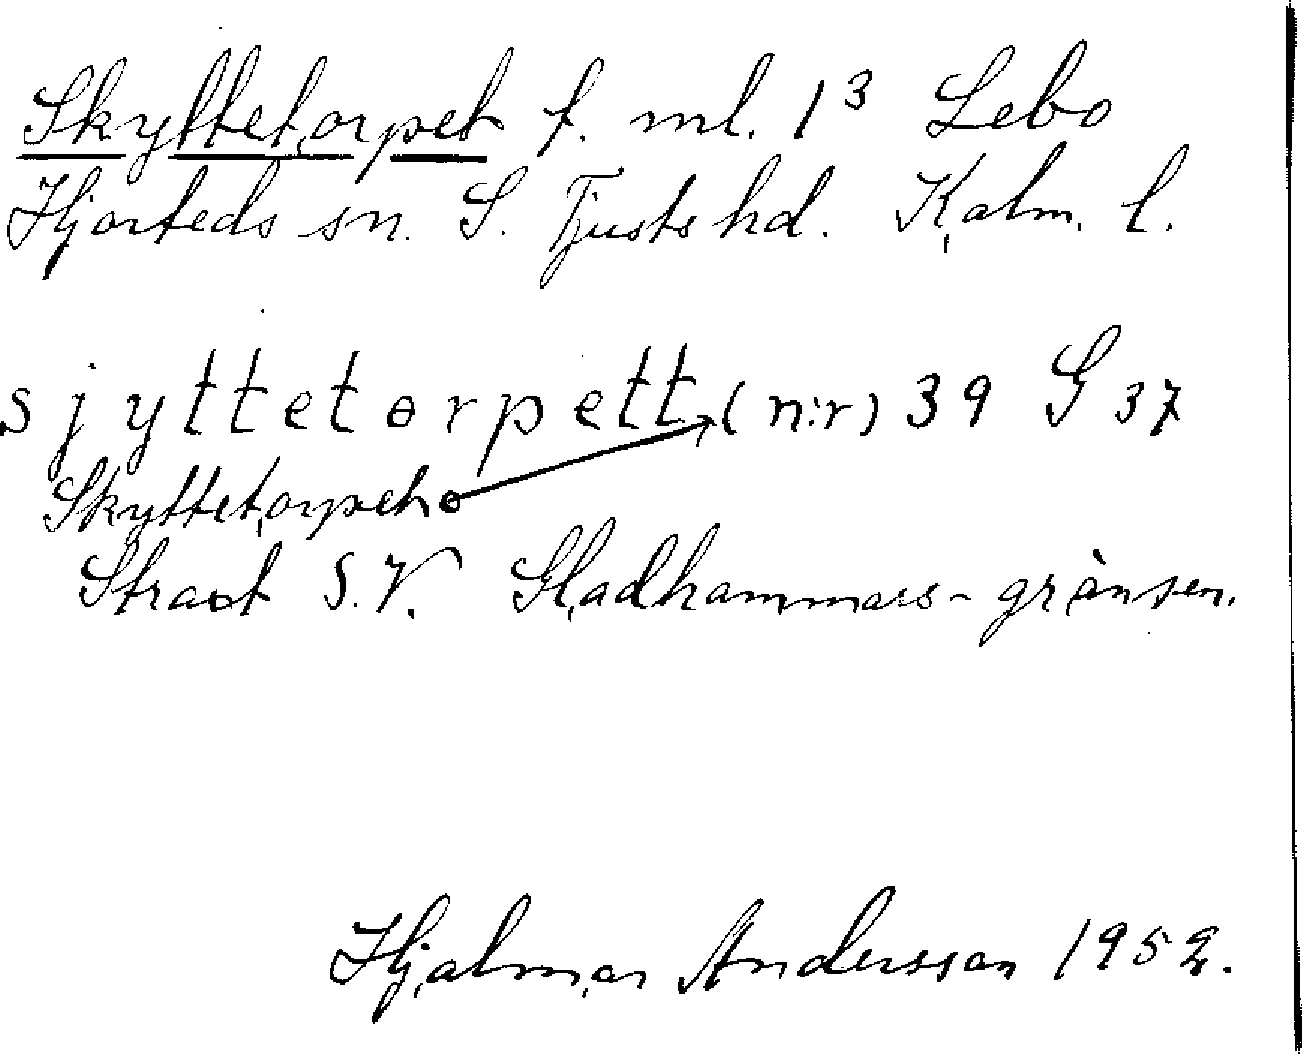 Skyttetorpet f. ml. 1³ Lebo
Hjorteds sn. S. Tjusts hd. Kalm. l.
sjyttetorpett, (n:r) 39 G 37
Skyttetorpet
Straxt S.V. Gladhammars-gränsen.
Hjalmar Andersson 1952.